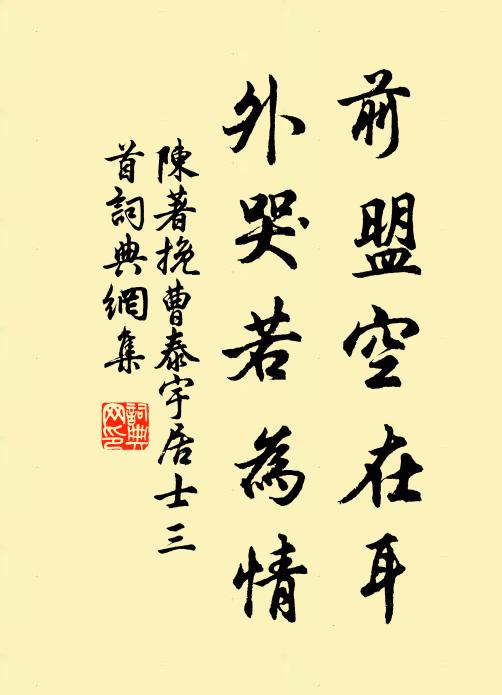 前盟空在耳
外哭若為情
陳著挽曹泰宇居士三
首詞典網集
詞典網印